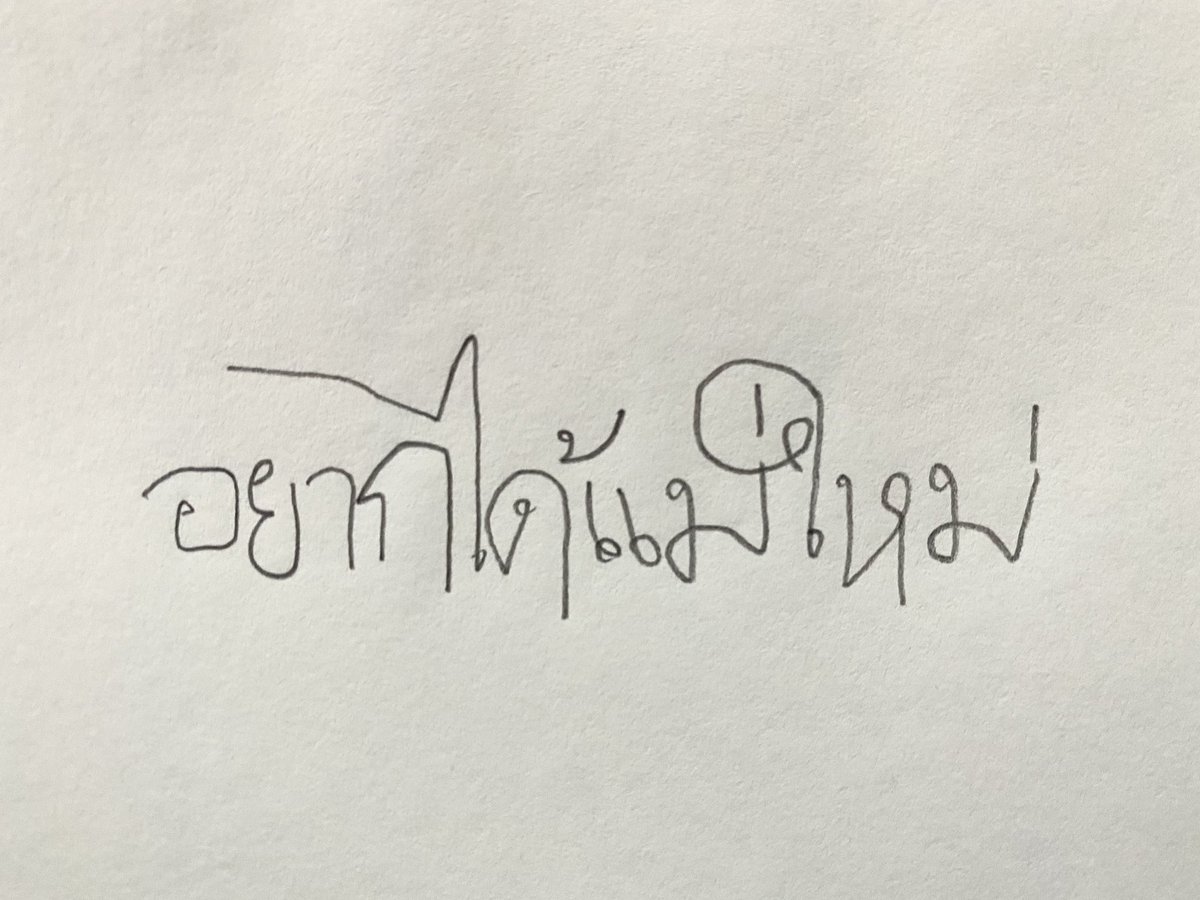 อยากได้แม่ใหม่